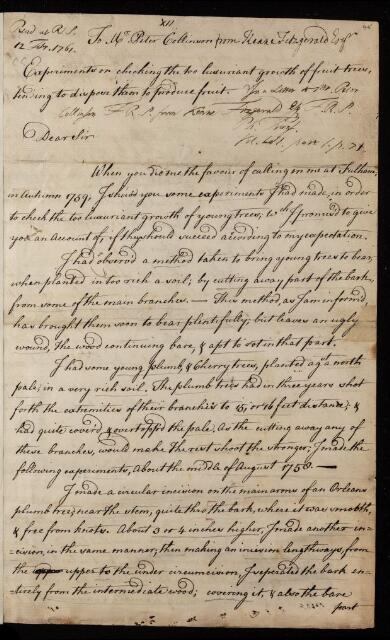 XII
Read at R.S.
12 Feb. 1761.
To Mr. Peter Collinson from Keane Fitzgerald Esqr
Experiments on checking the too luxuriant growth of fruit trees,
tending to dispose them to produce fruit. In a Letter to Mr. Peter
Collinson F.R.S. from Keane Fitzgerald Esq F.R.S.
Dear Sir
When you did me the favour of calling on me at Fulham,
in Autumn 1759. I shew'd you some experiments I had made, in order
to check the too luxuriant growth of young trees, wch. I promis'd to give
you an Account of, if they should succeed according to my expectation.
I had observed a method taken to bring young trees to bear,
when planted in too rich a soil; by cutting away part of the bark,
from some of the main branches. — This method, as I am inform'd,
has brought them soon to bear plentifully; but leaves an ugly
wound, the wood continuing bare, & apt to rot in that part.
I had some young plumb, & Cherry trees, planted agst a north
pale; in a very rich soil. The plumb trees had in three years shot
forth the extremities of their branches to 15, or 16 feet distance; &
had quite cover'd, & overtopp'd the pale; As the cutting away any of
these branches, would make the rest shoot the stronger; I made the
following experiments, About the middle of August 1758. —
I made a circular incision on the main arms of an Orleans
plumb tree; near the stem, quite thro the bark, where it was smooth,
& free from knots. About 3 or 4 inches higher, I made another in-
-cision, in the same manner; then making an incision lengthways, from
the upper to the under circumcision, I seperated the bark en-
-tirely from the intermediate wood; covering it, & also the bare
part